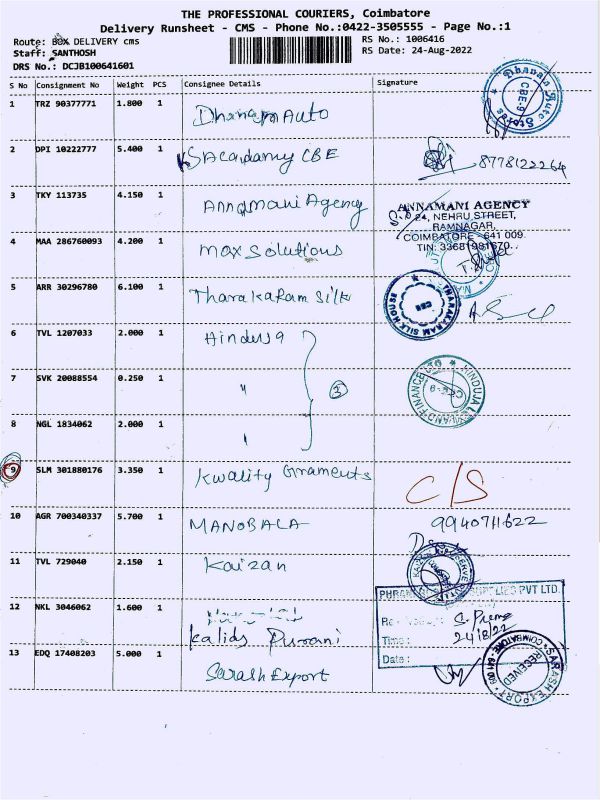 THE PROFESSIONAL COURIERS, Coimbatore
Delivery Runsheet - CMS - Phone No.:0422-3505555 - Page No.:1
Route: BOX DELIVERY cms RS No.: 1006416
Staff: SANTHOSH RS Date: 24-Aug-2022
DRS No.: DCJB100641601
S No Consignment No Weight PCS Consignee Details Signature
1 TRZ 90377771 1.800 1 Dhanam Auto
2 DPI 10222777 5.400 1 KS Acadamy CBE 8778122264
3 TKY 113735 4.150 1 Annamani Agency
ANNAMANI AGENCY
24, NEHRU STREET,
RAMNAGAR,
COIMBATORE - 641 009.
4 MAA 286760093 4.200 1 max solutions
5 ARR 30296780 6.100 1 Tharakaram silk
THARAKARAM SILK HOUSE CBE
6 TVL 1207033 2.000 1 Hinduja
7 SVK 20088554 0.250 1 " 3
8 NGL 1834062 2.000 1 "
HINDUJA LEYLAND FINANCE LTD
9 SLM 301880176 3.350 1 Kwality Graments C/S
10 AGR 700340337 5.700 1 MANOBALA 9940711622
11 TVL 729040 2.150 1 Kaizan
12 NKL 3046062 1.600 1 Kalids Purani
PVT LTD.
S. Prema
Time : 24/8/22
Date :
13 EDQ 17408203 5.000 1 Sarash Export
SARASH EXPORT COIMBATORE RECEIVED